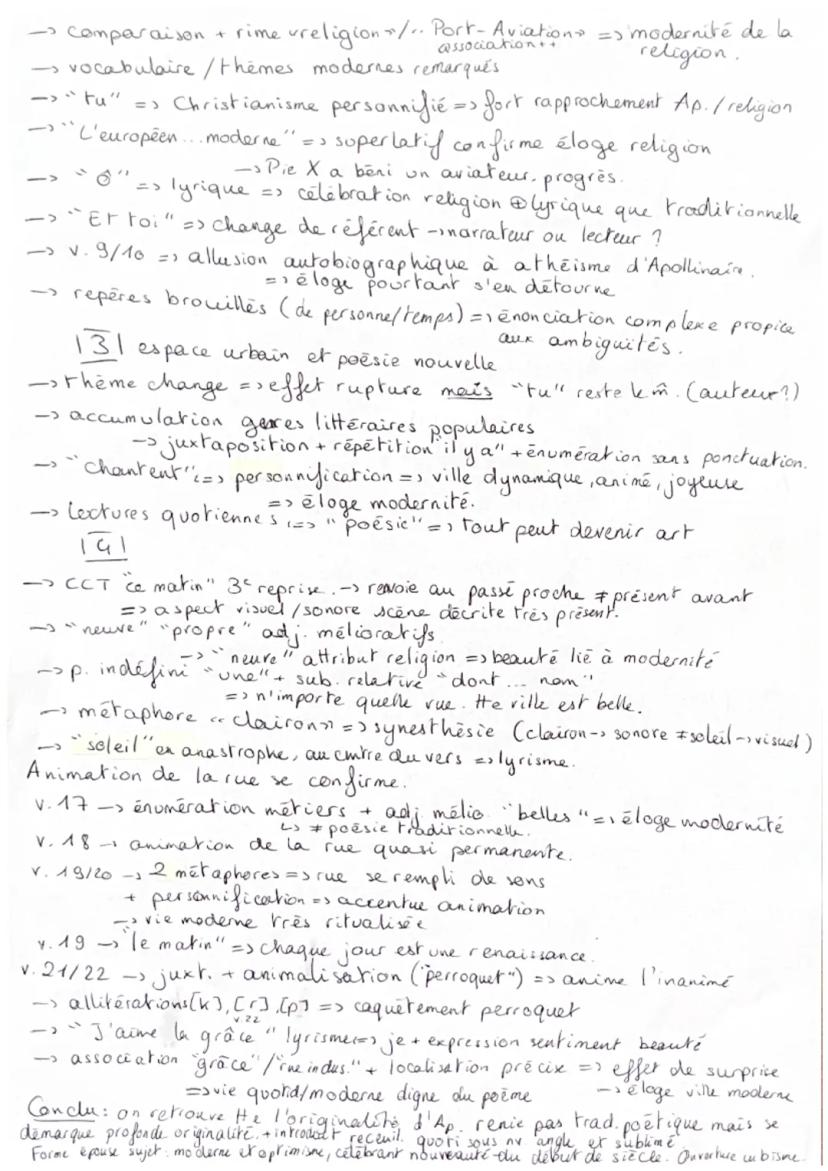 -> comparaison + rime «religion»/«Port-Aviation» => modernité de la
association++ religion.
-> vocabulaire/thèmes modernes remarqués
-> "tu" => Christianisme personnifié => fort rapprochement Ap./religion
-> "L'européen...moderne" => superlatif confirme éloge religion
-> Pie X a béni un aviateur, progrès.
-> "ô" => lyrique => célébration religion ⊕ lyrique que traditionnelle
-> "Et toi" => change de référent -> narrateur ou lecteur ?
-> v. 9/10 => allusion autobiographique à athéisme d'Apollinaire.
=> éloge pourtant s'en détourne
-> repères brouillés (de personne/temps) => énonciation complexe propice
aux ambiguïtés.
|3| espace urbain et poésie nouvelle
-> thème change => effet rupture mais "tu" reste le m̂. (auteur?)
-> accumulation genres littéraires populaires
-> juxtaposition + répétition "il y a" + énumération sans ponctuation.
-> "chantent" => personnification => ville dynamique, animé, joyeuse
=> éloge modernité.
-> Lectures quotiennes => "poésie" => tout peut devenir art
|4|
-> CCT "ce matin" 3e reprise. -> renvoie au passé proche ≠ présent avant
=> aspect visuel/sonore scène décrite très présent.
-> "neuve" "propre" adj. mélioratifs
-> "neuve" attribut religion => beauté lié à modernité
-> p. indéfini "une" + sub. relative "dont ... nom"
=> n'importe quelle rue. tte ville est belle.
-> métaphore «clairon» => synesthésie (clairon -> sonore ≠ soleil -> visuel)
-> "soleil" en anastrophe, au cntre du vers => lyrisme.
Animation de la rue se confirme.
v. 17 -> énumération métiers + adj. mélio. "belles" => éloge modernité
↳ ≠ poésie traditionnelle.
v. 18 -> animation de la rue quasi permanente.
v. 19/20 -> 2 métaphores => rue se rempli de sons
+ personnification => accentue animation
-> vie moderne très ritualisée
v. 19 -> "le matin" => chaque jour est une renaissance.
v. 21/22 -> juxt. + animalisation ("perroquet") => anime l'inanimé
-> allitérations [k], [r], [p] => caquètement perroquet
v.22
-> "J'aime la grâce" lyrisme => je + expression sentiment beauté
-> association "grâce"/"rue indus." + localisation précise => effet de surprise
=> vie quotid/moderne digne du poème -> éloge ville moderne
Conclu: on retrouve tte l'originalité d'Ap. renie pas trad. poétique mais se
démarque profonde originalité. + introduit receuil. quoti sous nv angle et sublimé
Forme épouse sujet: moderne et optimisme, célébrant nouveauté du début de siècle. Ouverture cubisme.